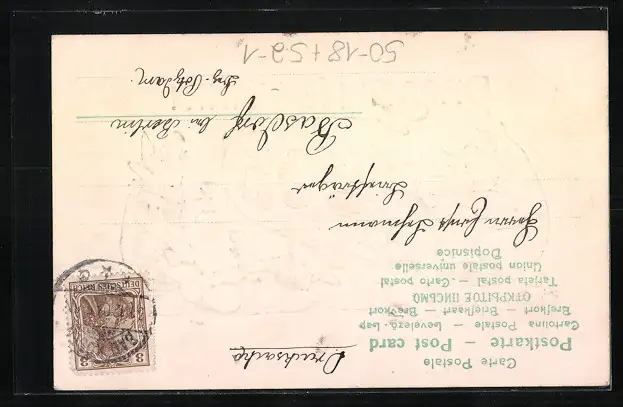 Carte Postale
Postkarte — Post card
Cartolina Postale — Levelező-Lap
Brefkort — Briefkaart — Brevkort
ОТКРЫТОЕ ПИСЬМО
Tarjeta postal — Carte postal
Union postale universelle
Dopisnice
Drucksache
DEUTSCHES REICH
3 3
Herrn Ernst Lehmann
Briefträger
Basdorf bei Berlin
50-18+5.2-1